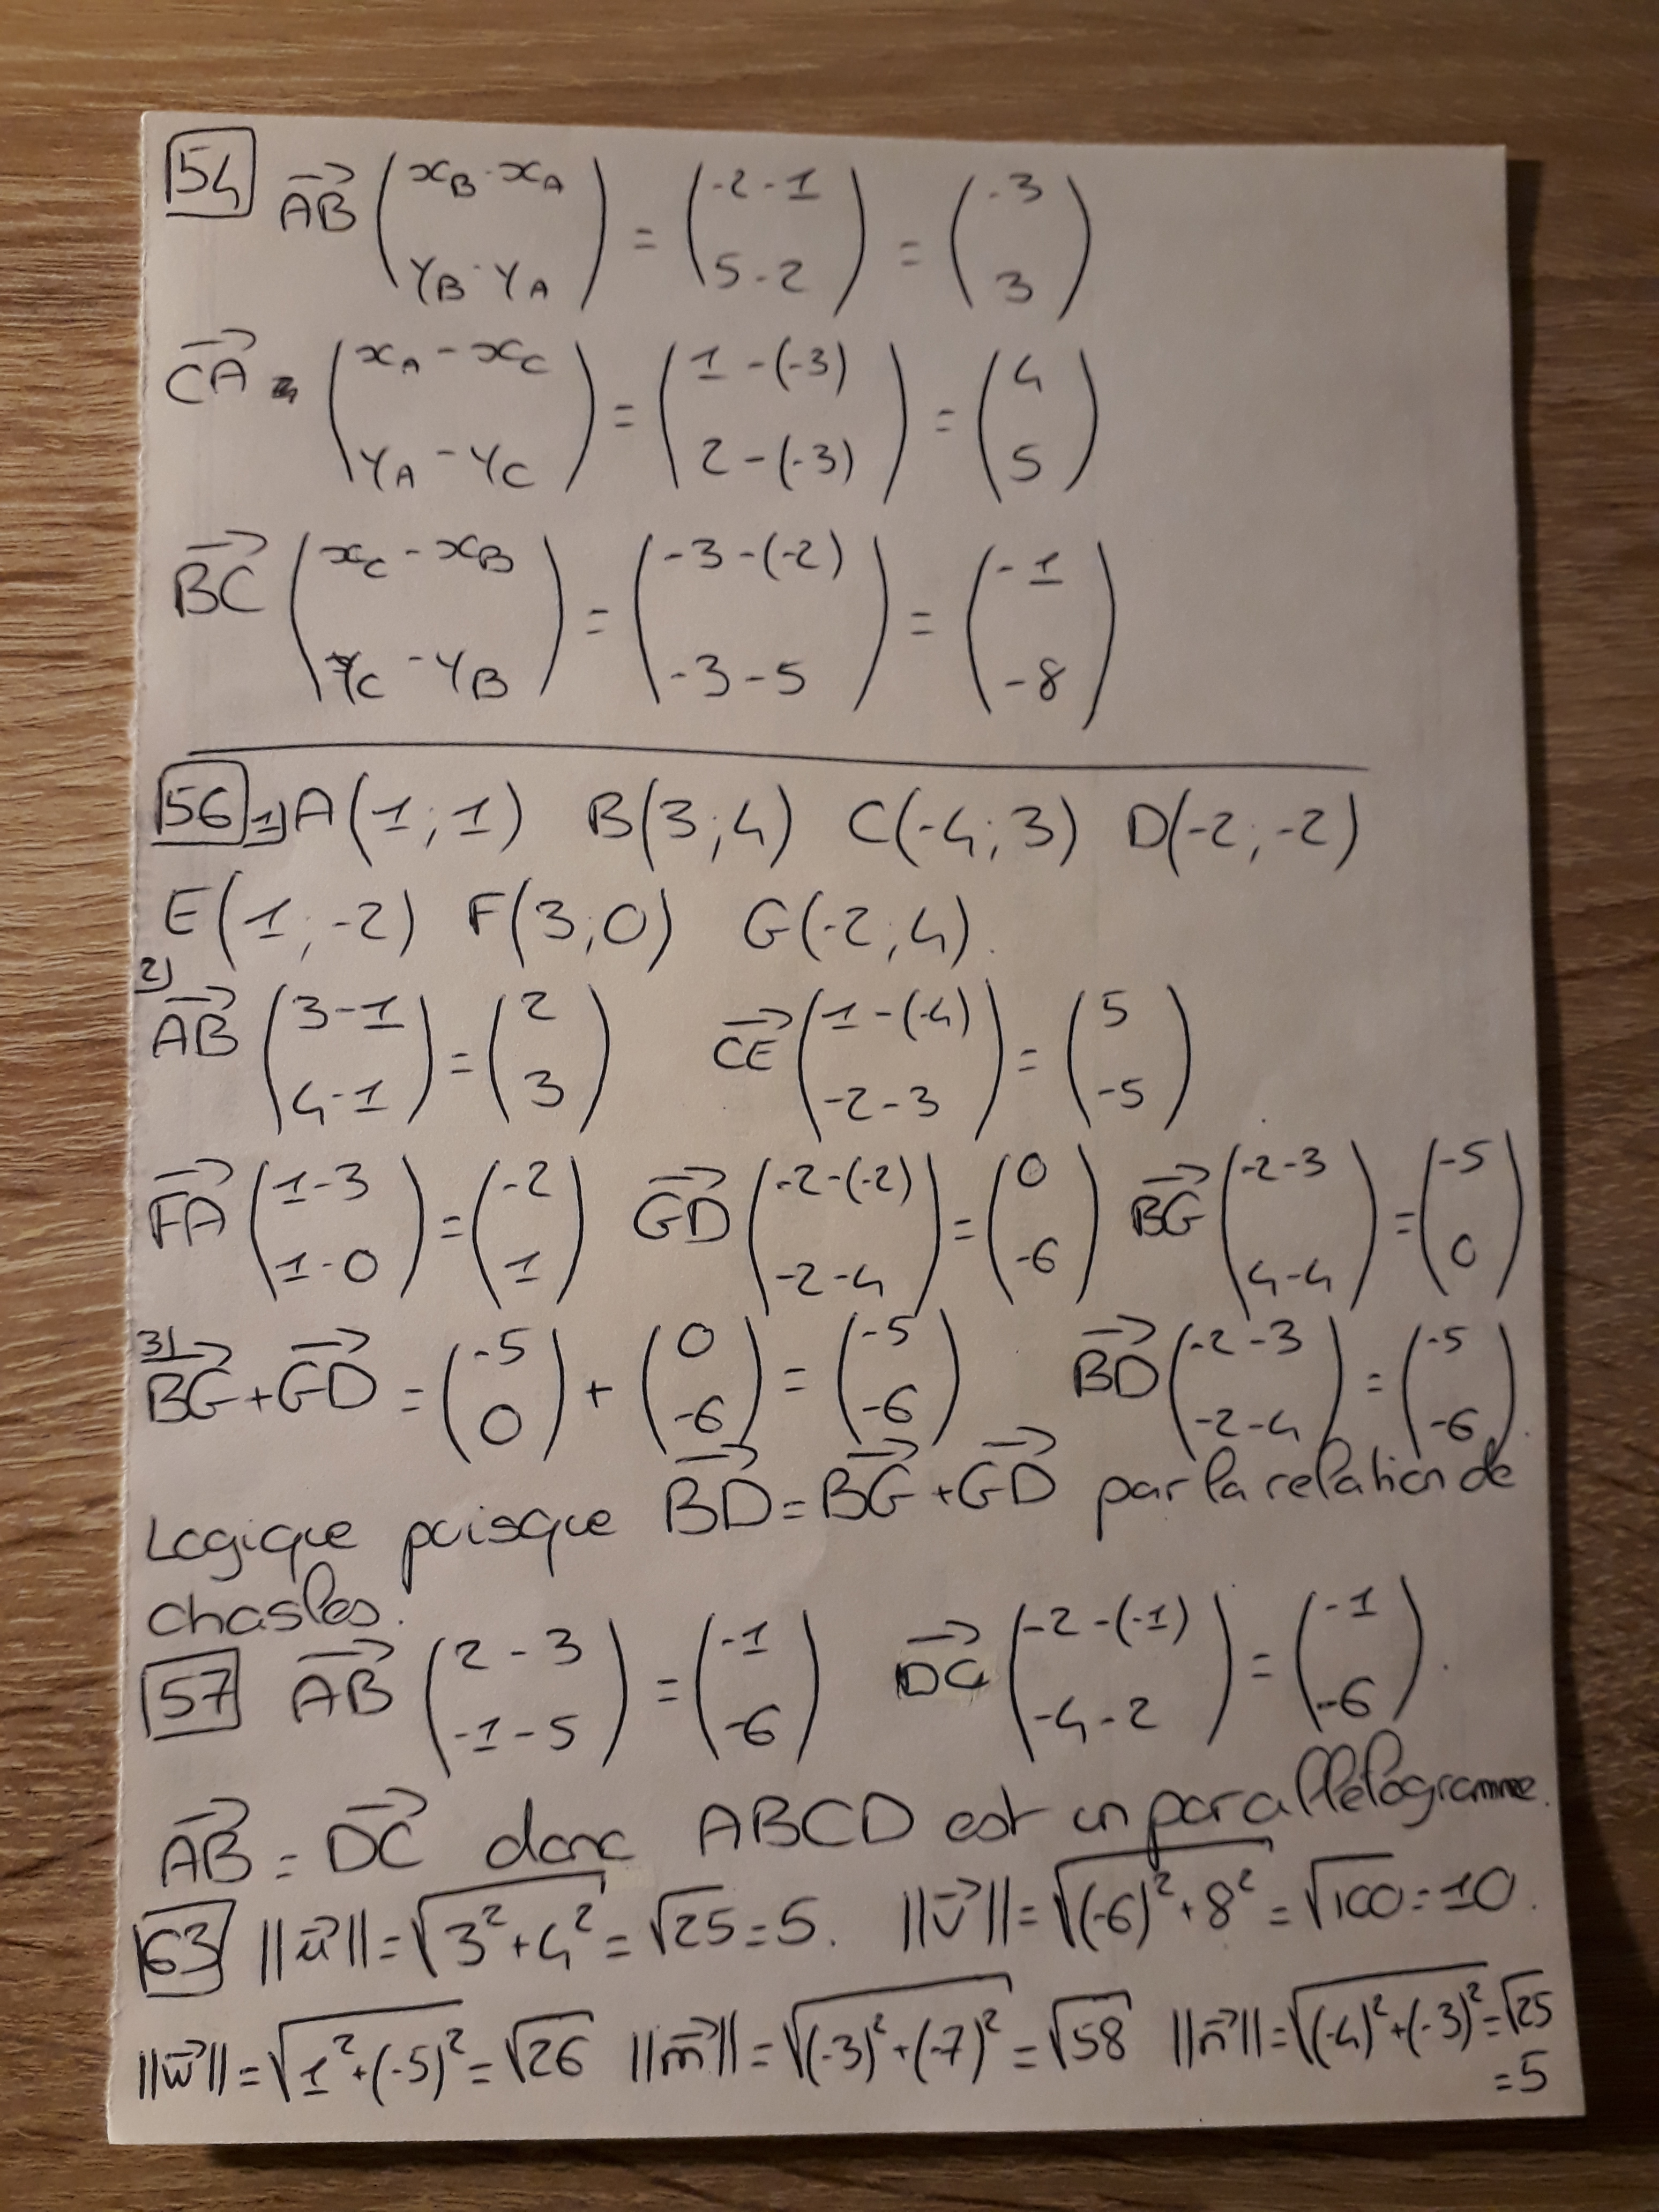 54 $\overrightarrow{AB} \begin{pmatrix} x_B - x_A \\ y_B - y_A \end{pmatrix} = \begin{pmatrix} -2-1 \\ 5-2 \end{pmatrix} = \begin{pmatrix} -3 \\ 3 \end{pmatrix}$
$\overrightarrow{CA} \begin{pmatrix} x_A - x_C \\ y_A - y_C \end{pmatrix} = \begin{pmatrix} 1-(-3) \\ 2-(-3) \end{pmatrix} = \begin{pmatrix} 4 \\ 5 \end{pmatrix}$
$\overrightarrow{BC} \begin{pmatrix} x_C - x_B \\ y_C - y_B \end{pmatrix} = \begin{pmatrix} -3-(-2) \\ -3-5 \end{pmatrix} = \begin{pmatrix} -1 \\ -8 \end{pmatrix}$
56 1) A(1;1) B(3;4) C(-4;3) D(-2;-2)
E(1;-2) F(3;0) G(-2;4).
2) $\overrightarrow{AB} \begin{pmatrix} 3-1 \\ 4-1 \end{pmatrix} = \begin{pmatrix} 2 \\ 3 \end{pmatrix}$ $\overrightarrow{CE} \begin{pmatrix} 1-(-4) \\ -2-3 \end{pmatrix} = \begin{pmatrix} 5 \\ -5 \end{pmatrix}$
$\overrightarrow{FA} \begin{pmatrix} 1-3 \\ 1-0 \end{pmatrix} = \begin{pmatrix} -2 \\ 1 \end{pmatrix}$ $\overrightarrow{GD} \begin{pmatrix} -2-(-2) \\ -2-4 \end{pmatrix} = \begin{pmatrix} 0 \\ -6 \end{pmatrix}$ $\overrightarrow{BG} \begin{pmatrix} -2-3 \\ 4-4 \end{pmatrix} = \begin{pmatrix} -5 \\ 0 \end{pmatrix}$
3) $\overrightarrow{BG} + \overrightarrow{GD} = \begin{pmatrix} -5 \\ 0 \end{pmatrix} + \begin{pmatrix} 0 \\ -6 \end{pmatrix} = \begin{pmatrix} -5 \\ -6 \end{pmatrix}$ $\overrightarrow{BD} \begin{pmatrix} -2-3 \\ -2-4 \end{pmatrix} = \begin{pmatrix} -5 \\ -6 \end{pmatrix}$.
Logique puisque $\overrightarrow{BD} = \overrightarrow{BG} + \overrightarrow{GD}$ par la relation de
chasles.
57 $\overrightarrow{AB} \begin{pmatrix} 2-3 \\ -1-5 \end{pmatrix} = \begin{pmatrix} -1 \\ -6 \end{pmatrix}$ $\overrightarrow{DC} \begin{pmatrix} -2-(-1) \\ -4-2 \end{pmatrix} = \begin{pmatrix} -1 \\ -6 \end{pmatrix}$.
$\overrightarrow{AB} = \overrightarrow{DC}$ donc ABCD est un parallélogramme.
63 $||\vec{u}|| = \sqrt{3^2+4^2} = \sqrt{25} = 5$. $||\vec{v}|| = \sqrt{(-6)^2+8^2} = \sqrt{100} = 10$.
$||\vec{w}|| = \sqrt{1^2+(-5)^2} = \sqrt{26}$ $||\vec{m}|| = \sqrt{(-3)^2+(-7)^2} = \sqrt{58}$ $||\vec{n}|| = \sqrt{(-4)^2+(-3)^2} = \sqrt{25}$
= 5